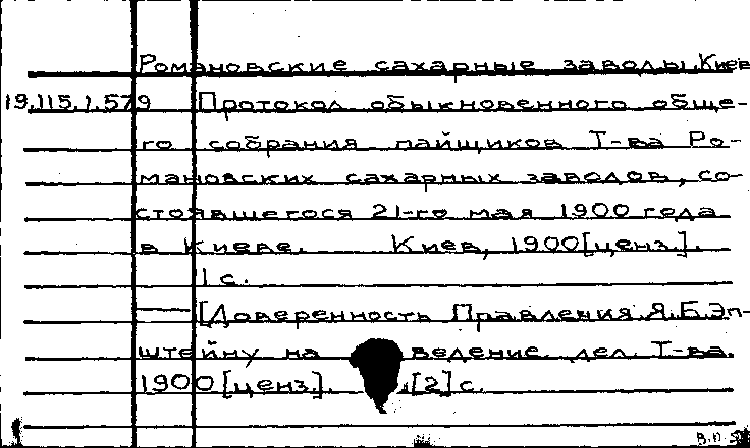 Романовские сахарные заводы, Киев
19.115.1.579 Протокол обыкновенного обще-
го собрания пайщиков Т-ва Ро-
мановских сахарных заводов, со-
стоявшегося 21-го мая 1900 года
в Киеве. Киев, 1900[ценз.].
1 с.
— [Доверенность Правления Я.Б.Эп-
штейну на ведение дел Т-ва.
1900[ценз.]. [2]с.